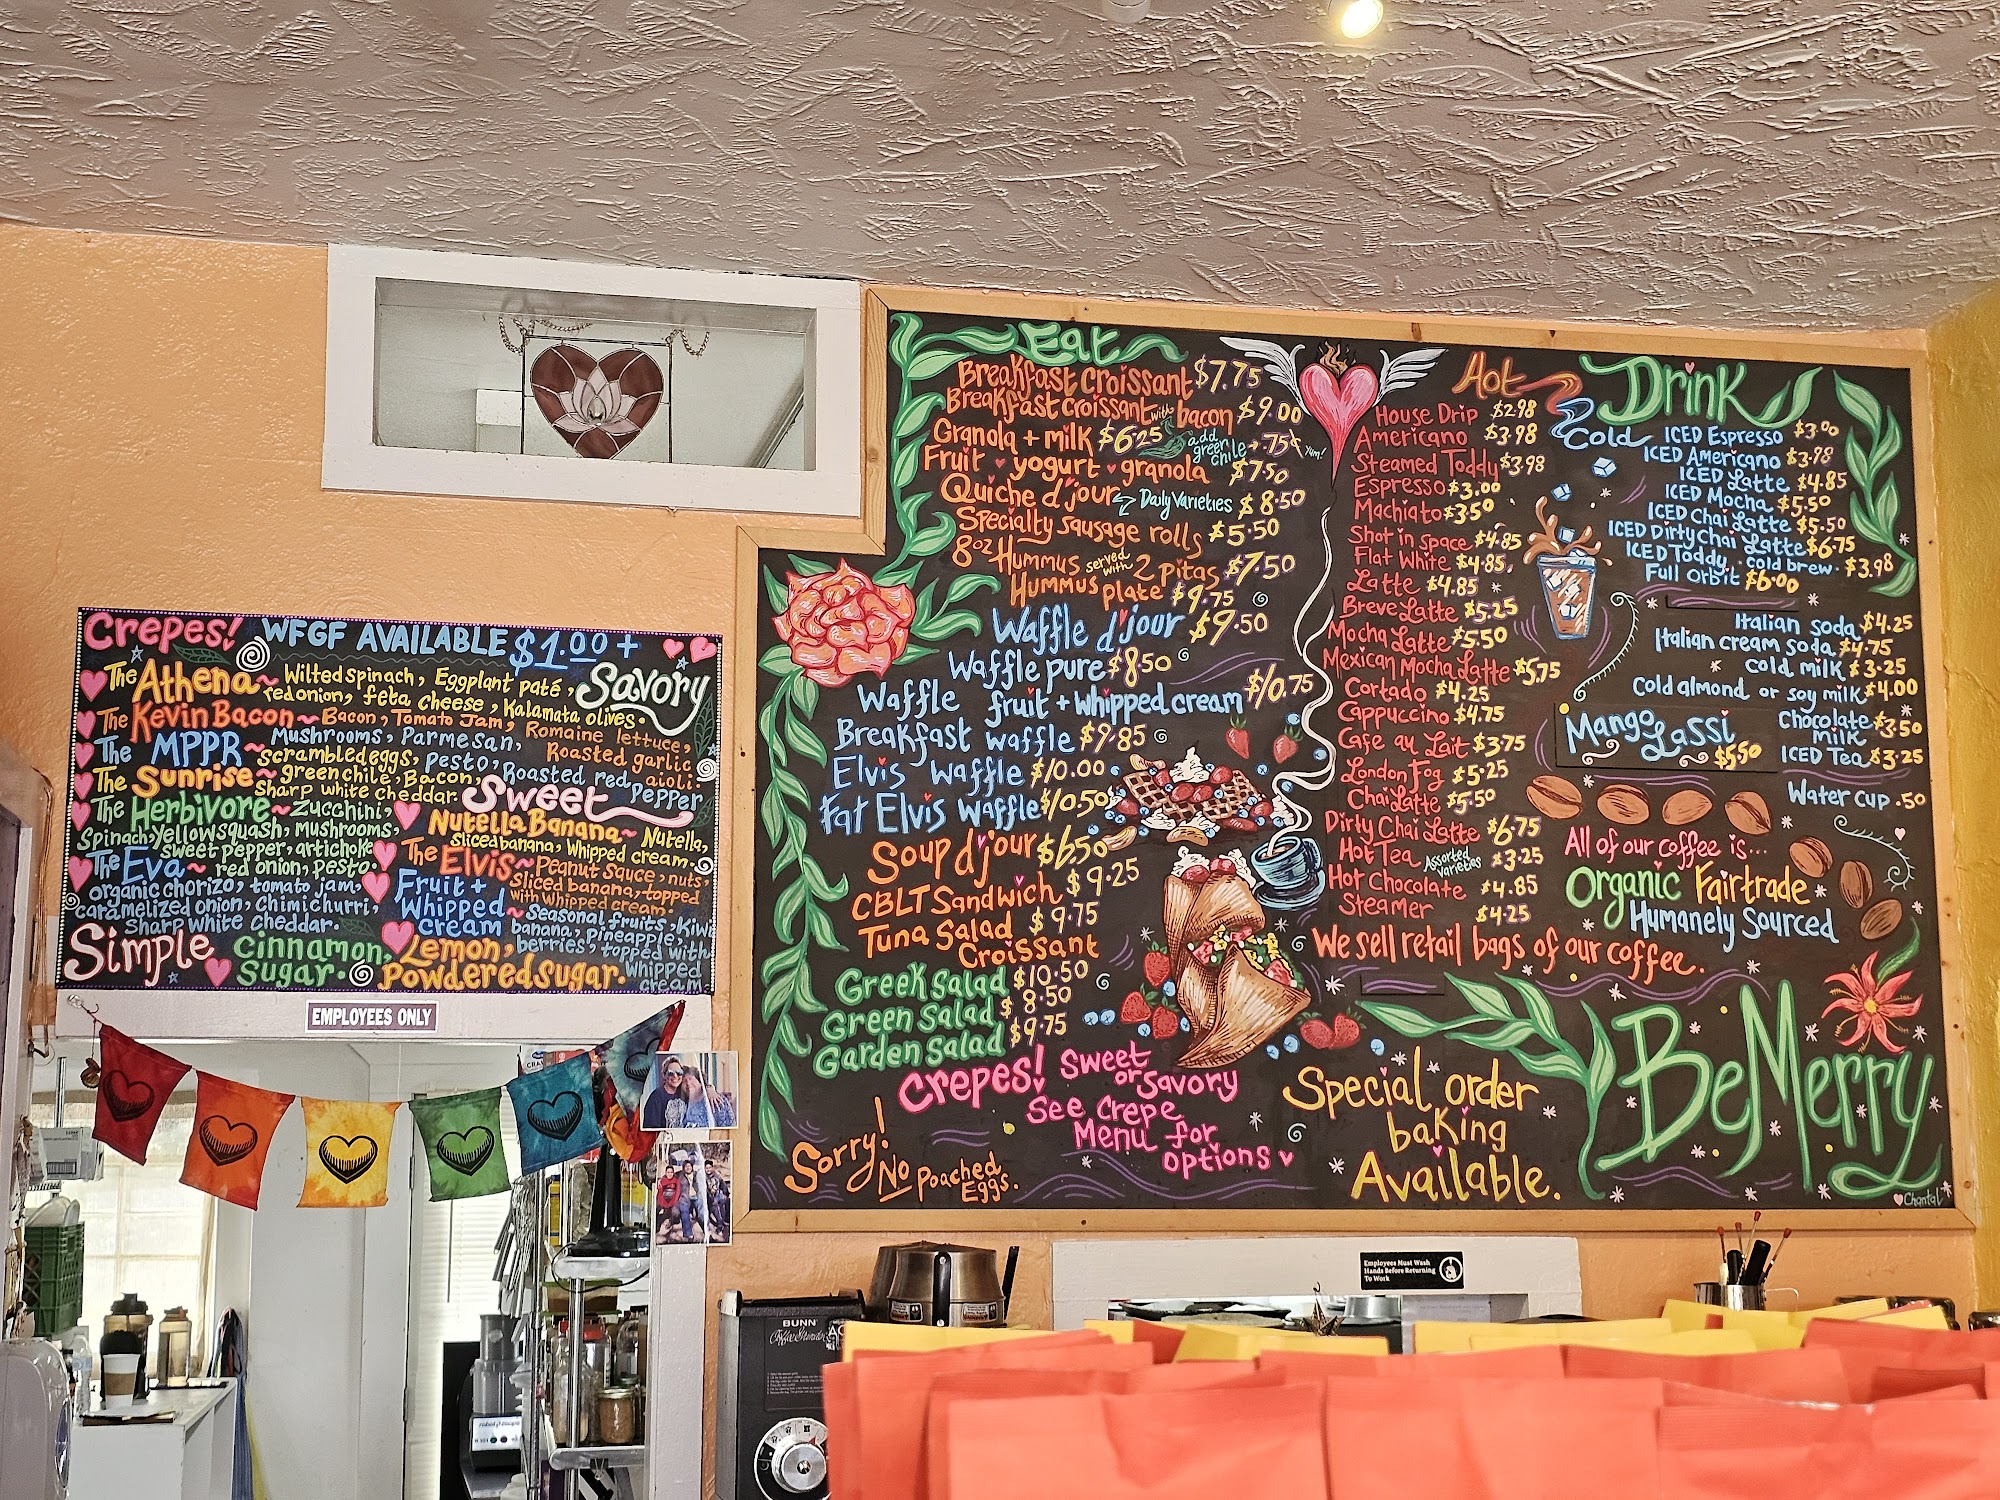 Crepes! WFGF AVAILABLE $1.00+
Savory
The Athena~ Wilted spinach, Eggplant paté,
red onion, feta cheese, Kalamata olives.
The Kevin Bacon~ Bacon, Tomato Jam, Romaine lettuce,
Roasted garlic aioli.
The MPPR~ Mushrooms, Parmesan,
scrambled eggs, pesto, Roasted red pepper
The Sunrise~ green chile, Bacon,
sharp white cheddar.
The Herbivore~ Zucchini,
Spinach, Yellow squash, mushrooms,
sweet pepper, artichoke
The Eva~ red onion, pesto.
organic chorizo, tomato jam,
caramelized onion, Chimichurri,
Sharp white cheddar.
Sweet
Nutella Banana~ Nutella,
Sliced banana, whipped cream.
The Elvis~ Peanut sauce, nuts,
Sliced banana, topped
with whipped cream.
Fruit + Whipped cream~ Seasonal fruits, Kiwi
banana, Pineapple,
berries, topped with
Whipped
cream
Simple
Cinnamon, Sugar.
Lemon, Powdered sugar.
EMPLOYEES ONLY
Eat
Breakfast Croissant $7.75
Breakfast croissant with bacon $9.00
Granola + milk $6.25
add green chile .75¢ Yum!
Fruit yogurt granola $7.50
Quiche d'jour Daily Varieties $8.50
Specialty sausage rolls $5.50
8oz Hummus served with 2 Pitas $7.50
Hummus plate $9.75
Waffle d'jour $9.50
Waffle pure $8.50
Waffle fruit + whipped cream $10.75
Breakfast waffle $9.85
Elvis waffle $10.00
Fat Elvis Waffle $10.50
Soup d'jour $6.50
CBLT Sandwich $9.25
Tuna Salad Croissant $9.75
Greek Salad $10.50
Green Salad $8.50
Garden Salad $9.75
Crepes! Sweet or Savory
See Crepe
Menu for
options
Sorry!
No Poached Eggs.
Hot
Drink
House Drip $2.98
Americano $3.98
Steamed Toddy $3.98
Espresso $3.00
Machiato $3.50
Shot in space $4.85
Flat White $4.85
Latte $4.85
Breve Latte $5.25
Mocha Latte $5.50
Mexican Mocha Latte $5.75
Cortado $4.25
Cappuccino $4.75
Cafe au Lait $3.75
London Fog $5.25
Chai Latte $5.50
Dirty Chai Latte $6.75
Hot Tea Assorted varieties $3.25
Hot Chocolate $4.85
Steamer $4.25
Cold
ICED Espresso $3.00
ICED Americano $3.98
ICED Latte $4.85
ICED Mocha $5.50
ICED Chai Latte $5.50
ICED Dirty chai Latte $6.75
ICED Toddy cold brew $3.98
Full Orbit $6.00
Italian soda $4.25
Italian cream soda $4.75
cold milk $3.25
Cold almond or soy milk $4.00
Chocolate milk $3.50
Mango Lassi $5.50
ICED Tea $3.25
Water cup .50
All of our coffee is...
Organic Fairtrade
Humanely Sourced
We sell retail bags of our coffee.
Special order
baking
Available.
Be Merry
Chantal
Employees Must Wash
Hands Before Returning
To Work
BUNN